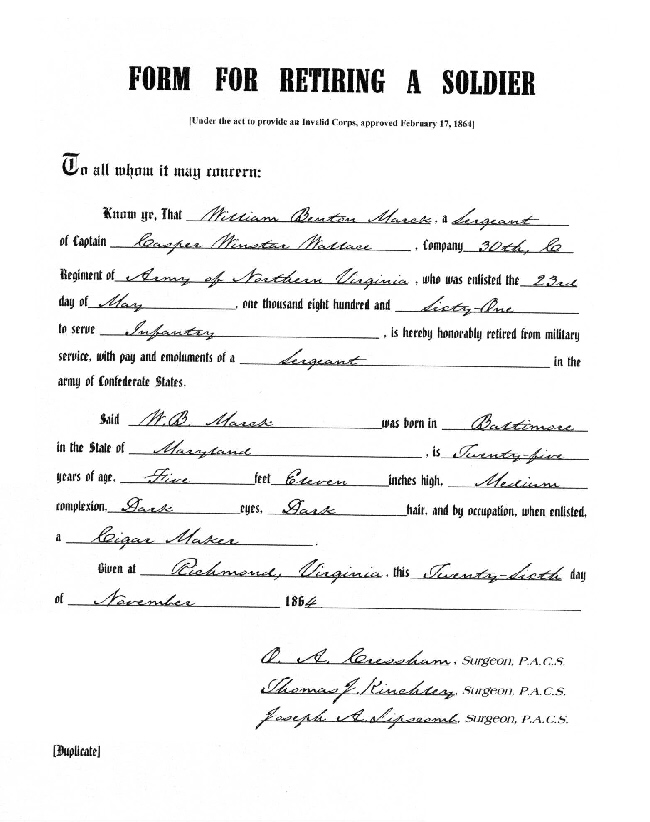 FORM FOR RETIRING A SOLDIER
[Under the act to provide an Invalid Corps, approved February 17, 1864]
To all whom it may concern:
Know ye, That William Benton Marck, a Sergeant
of Captain Casper Winstar Wallace, Company 30th, Co
Regiment of Army of Northern Virginia, who was enlisted the 23rd
day of May, one thousand eight hundred and Sixty-One
to serve Infantry, is hereby honorably retired from military
service, with pay and emoluments of a Sergeant in the
army of Confederate States.
Said W.B. Marck was born in Baltimore
in the State of Maryland, is Twenty-five
years of age, Five feet Eleven inches high, Medium
complexion, Dark eyes, Dark hair, and by occupation, when enlisted,
a Cigar Maker.
Given at Richmond, Virginia, this Twenty-Sixth day
of November 1864
O. A. Cressham, Surgeon, P.A.C.S.
Thomas J. Surgeon, P.A.C.S.
Joseph A. Lipscomb, Surgeon, P.A.C.S.
[Duplicate]